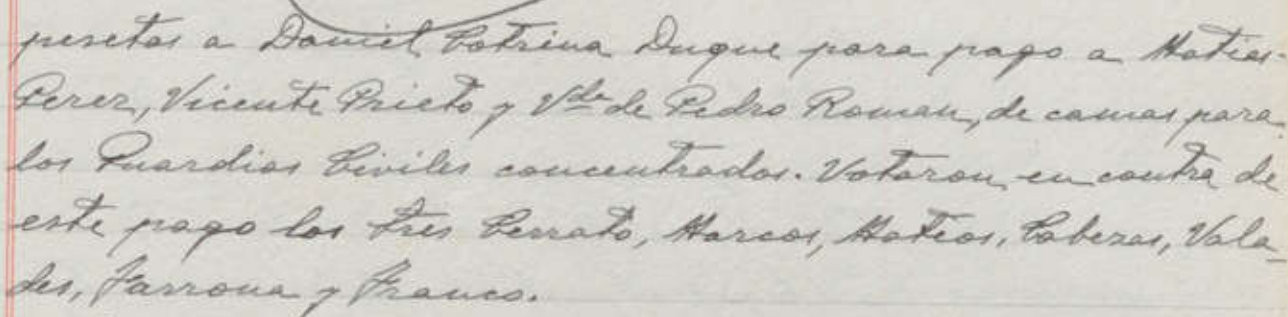 pesetas a Daniel Cotrina Duque para pago a Matias
Perez, Vicente Prieto y Vda de Pedro Roman, de camas para
los Guardias Civiles concentrados. Votaron en contra de
este pago los tres Serrato, Marcos, Matias, Cabezas, Vala-
des, Farrona y Franco.